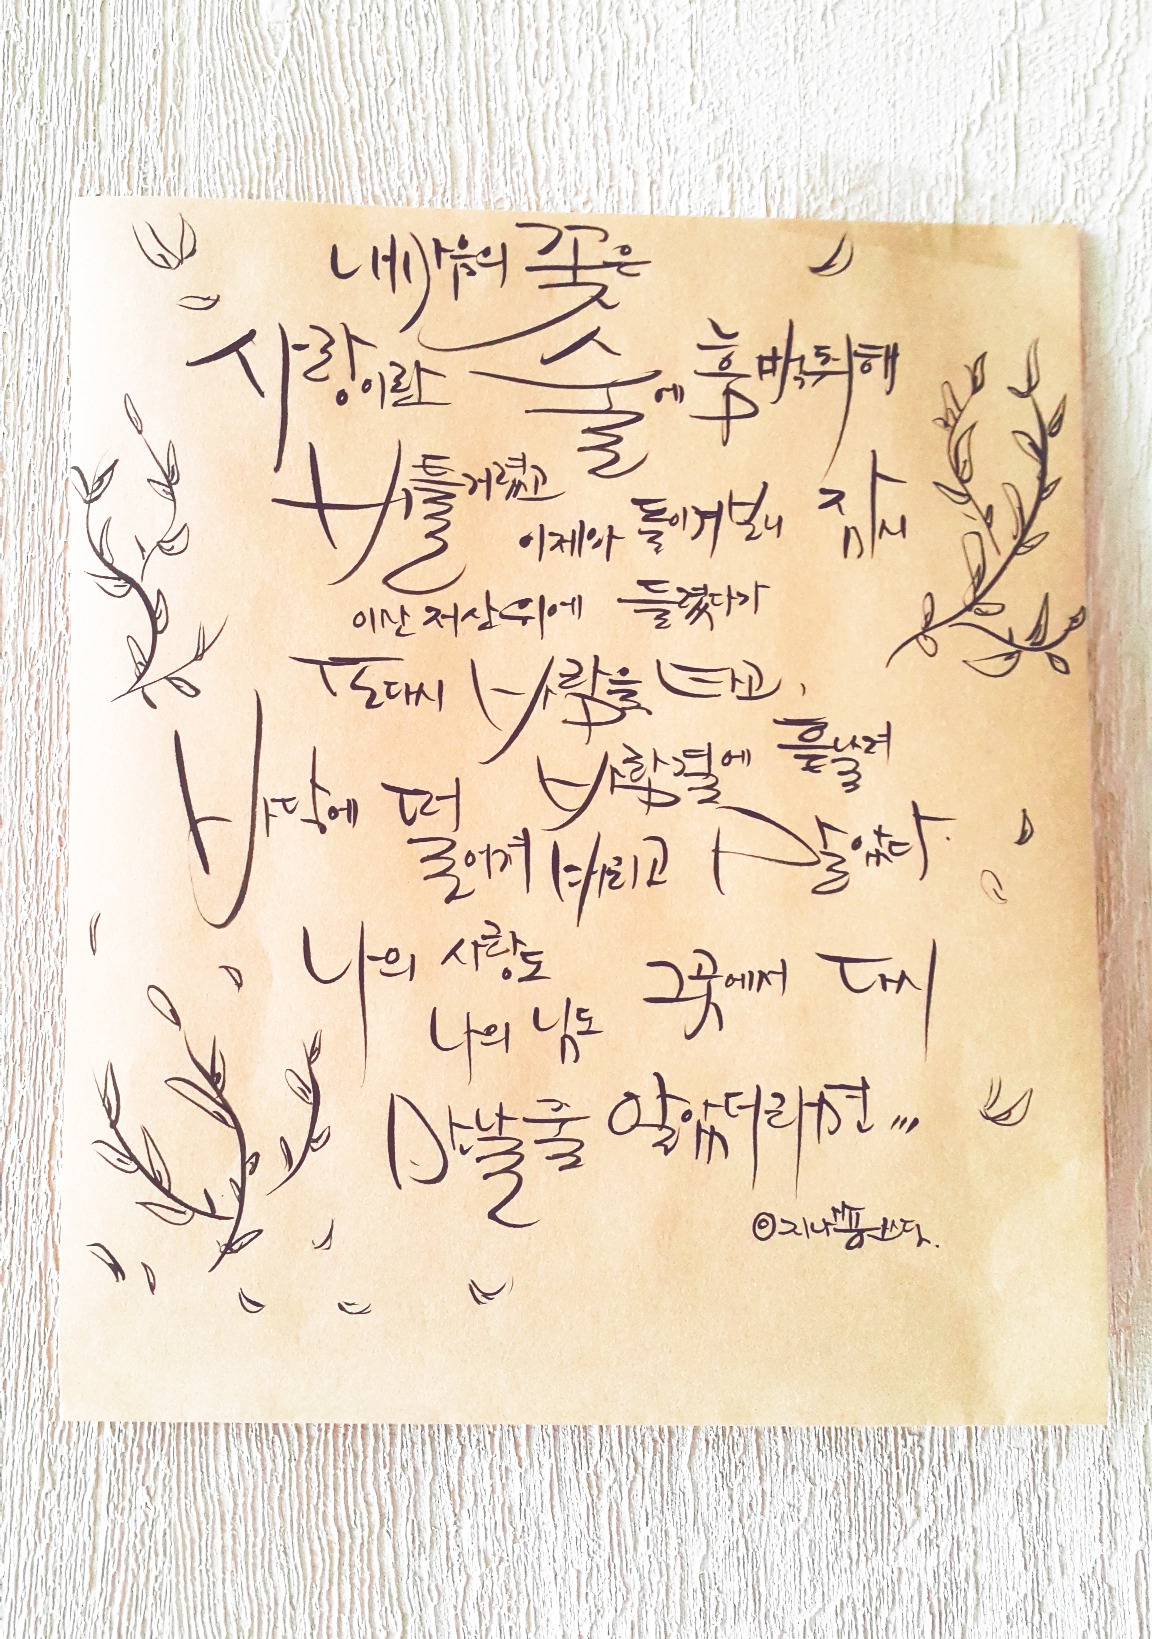 내 마음의 꽃은
사랑이란 술에 흠뻑 취해
비틀거렸고
이제와 돌이켜보니 잠시
이산 저산 위에 들렸다가
또다시 바람을 타고,
바람결에 흩날려
바닥에 떨어져 버리고 말았다.
나의 사랑도
나의 님도 그곳에서 다시
만날줄 알았더라면...